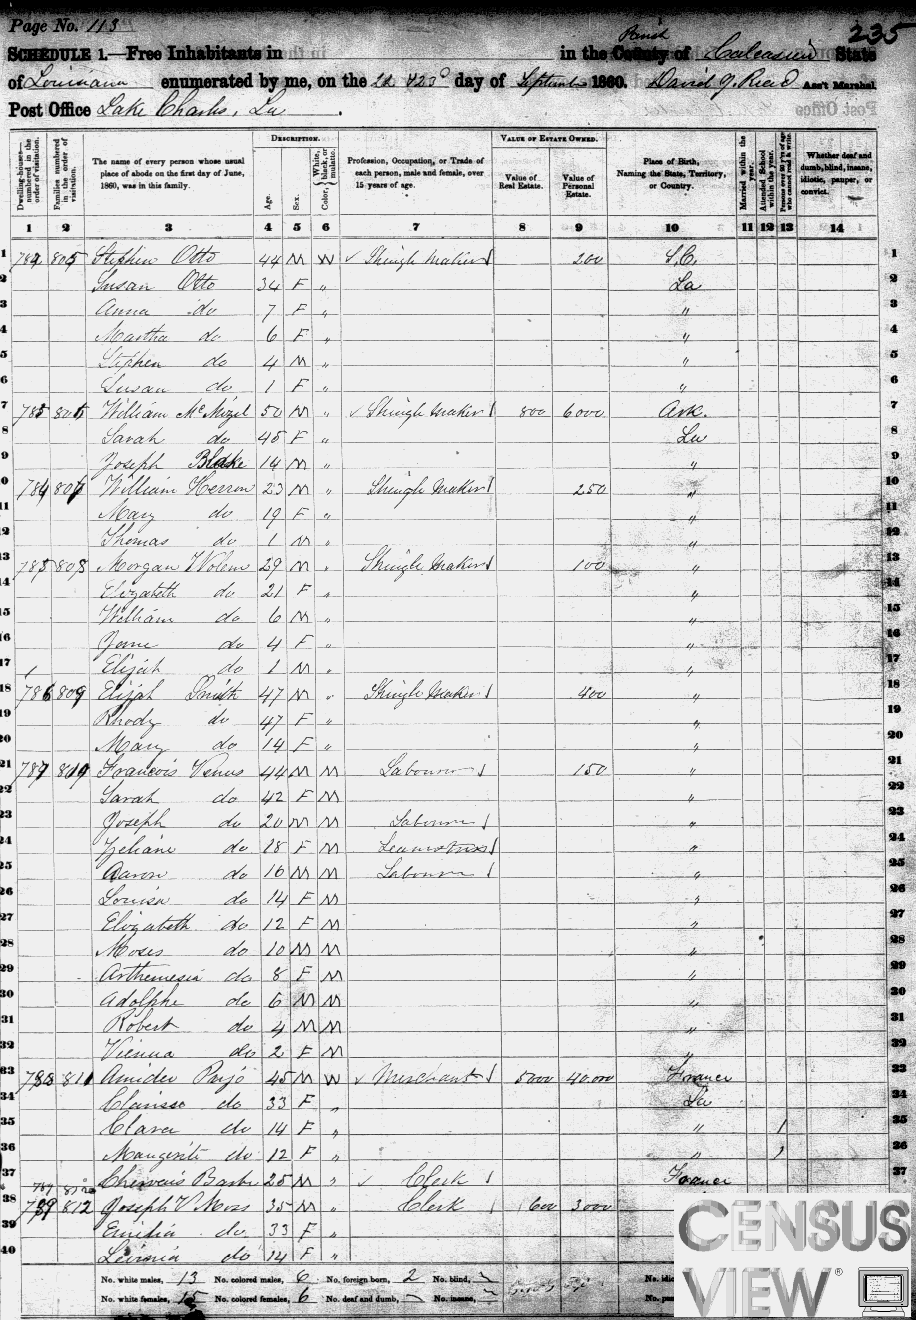 Page No. 113
235
SCHEDULE 1.—Free Inhabitants in in the County of Parish Calcasieu State
of Louisiana enumerated by me, on the day of September 1860. David J. Read Ass't Marshal
Post Office Lake Charles, La.
DESCRIPTION. VALUE OF ESTATE OWNED.
Dwelling-houses—numbered in the order of visitation. Families numbered in the order of visitation. The name of every person whose usual place of abode on the first day of June, 1860, was in this family. Age. Sex. Color, White, black, or mulatto. Profession, Occupation, or Trade of each person, male and female, over 15 years of age. Value of Real Estate. Value of Personal Estate. Place of Birth, Naming the State, Territory, or Country. Married within the year. Attended School within the year. Persons over 20 y'rs of age who cannot read & write. Whether deaf and dumb, blind, insane, idiotic, pauper, or convict.
1 2 3 4 5 6 7 8 9 10 11 12 13 14
1 805 Stephen Otto 44 M W Shingle Maker 200 S.C. 1
2 Susan Otto 34 F " La 2
3 Anna do 7 F " " 3
4 Martha do 6 F " " 4
5 Stephen do 4 M " " 5
6 Susan do 1 F " " 6
7 William McMizel 50 M " Shingle Maker 800 6000 Ark. 7
8 Sarah do 45 F " La 8
9 Joseph Blake 14 M " " 9
10 William Herron 23 M " Shingle Maker 250 " 10
11 Mary do 19 F " " 11
12 Thomas do 1 M " " 12
13 Morgan 29 M " Shingle Maker 100 " 13
14 Elizabeth do 21 F " " 14
15 William do 6 M " " 15
16 Jane do 4 F " " 16
17 Elijah do 1 M " " 17
18 786 809 Elijah Smith 47 M " Shingle Maker 400 " 18
19 Rhody do 47 F " " 19
20 Mary do 14 F " " 20
21 787 Francois Venus 44 M M Labourer 150 " 21
22 Sarah do 42 F M " 22
23 Joseph do 20 M M Labourer " 23
24 do 18 F M Seamstress " 24
25 Aaron do 16 M M Labourer " 25
26 Louisa do 14 F M " 26
27 Elizabeth do 12 F M " 27
28 Moses do 10 M M " 28
29 Arthemesia do 8 F M " 29
30 Adolphe do 6 M M " 30
31 Robert do 4 M M " 31
32 Vienna do 2 F M " 32
33 811 Amidee Pujo 45 M W Merchant 5000 40,000 France 33
34 Clarisse do 33 F " La 34
35 Clara do 14 F " " 1 35
36 do 12 F " " 1 36
37 25 M " Clerk France 37
38 789 812 Joseph V Moss 35 M " Clerk 600 3000
39 Emilia do 33 F "
40 do 14 F "
No. white males, 13 No. colored males, 6 No. foreign born, 2 No. blind,
No. white females, 15 No. colored females, 6 No. deaf and dumb, No. insane,
CENSUS
VIEW®